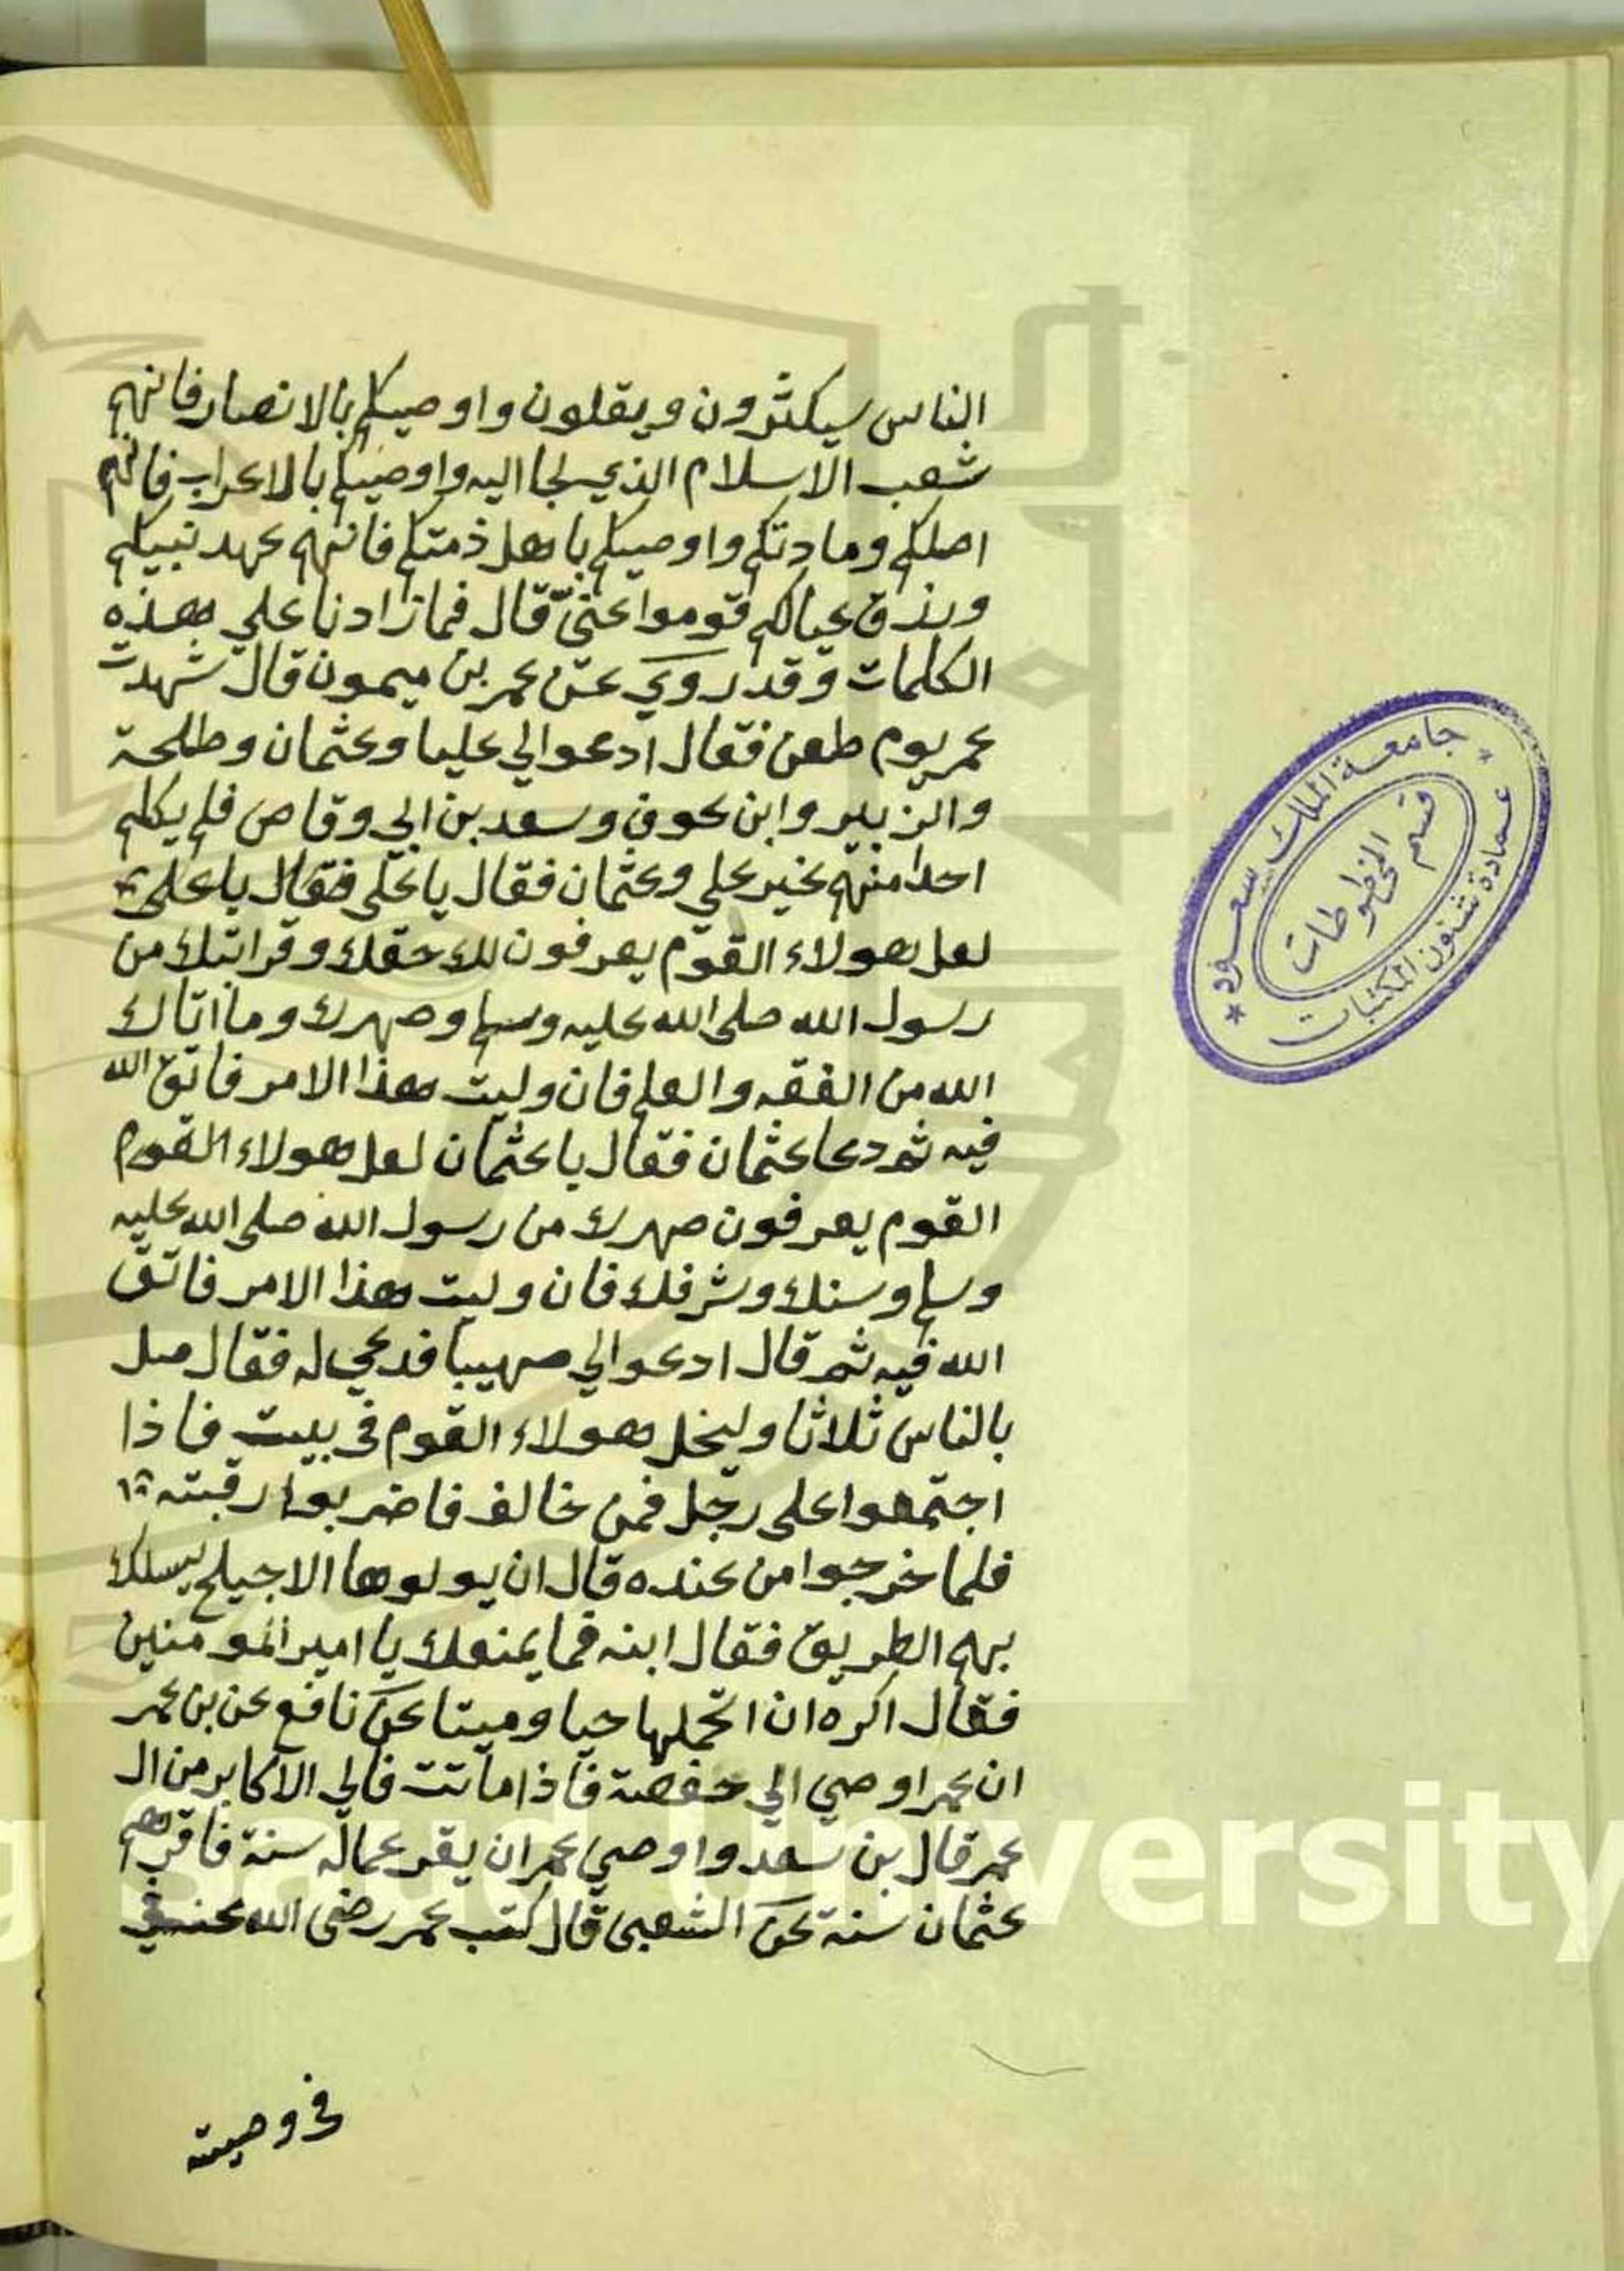 الناس سيكثرون ويقلون واوصيكم بالانصار فانهم
شعب الاسلام الذي لجا اليه واوصيكم بالاعراب فانهم
اصلكم ومادتكم واوصيكم باهل ذمتكم فانهم عهد نبيكم
ورزق عيالكم قوموا عني قال فما زادنا علي هذه
الكلمات وقد روي عن عمر بن ميمون قال شهدت
عمر يوم طعن فقال ادعوا لي عليا وعثمان وطلحة
والزبير وابن عوف وسعد بن ابي وقاص فلم يكلم
احدا منهم غير علي وعثمان فقال يا علي فقال يا علي
لعل هولاء القوم يعرفون لك حقك وقرابتك من
رسول الله صلى الله عليه وسلم وصهرك وما اتاك
الله من الفقه والعلم فان وليت هذا الامر فاتق الله
فيه ثم دعا عثمان فقال يا عثمان لعل هولاء القوم
القوم يعرفون صهرك من رسول الله صلى الله عليه
وسلم وسنك وشرفك فان وليت هذا الامر فاتق
الله فيه ثم قال ادعوا لي صهيبا فدعي له فقال صل
بالناس ثلاثا وليخل هولاء القوم في بيت فاذا
اجتمعوا على رجل فمن خالف فاضربوا رقبته
فلما خرجوا من عنده قال ان يولوها الاجيلح يسلك
بهم الطريق فقال ابنه فما يمنعك يا امير المومنين
فقال اكره ان اتحملها حيا وميتا عن نافع عن بن عمر
ان عمر اوصي الي حفصة فاذا ماتت فالي الاكابر من ال
عمر قال بن سعد واوصي عمر ان يقر عماله سنة فاقرهم
عثمان سنة عن الشعبي قال كتب عمر رضي الله عنه في
في وصيته
جامعة الملك سعود
قسم المخطوطات
عمادة شئون المكتبات
g Saud University